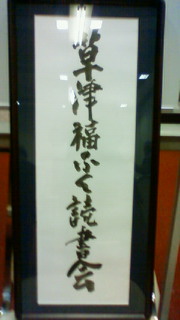 草津福ふく読書会